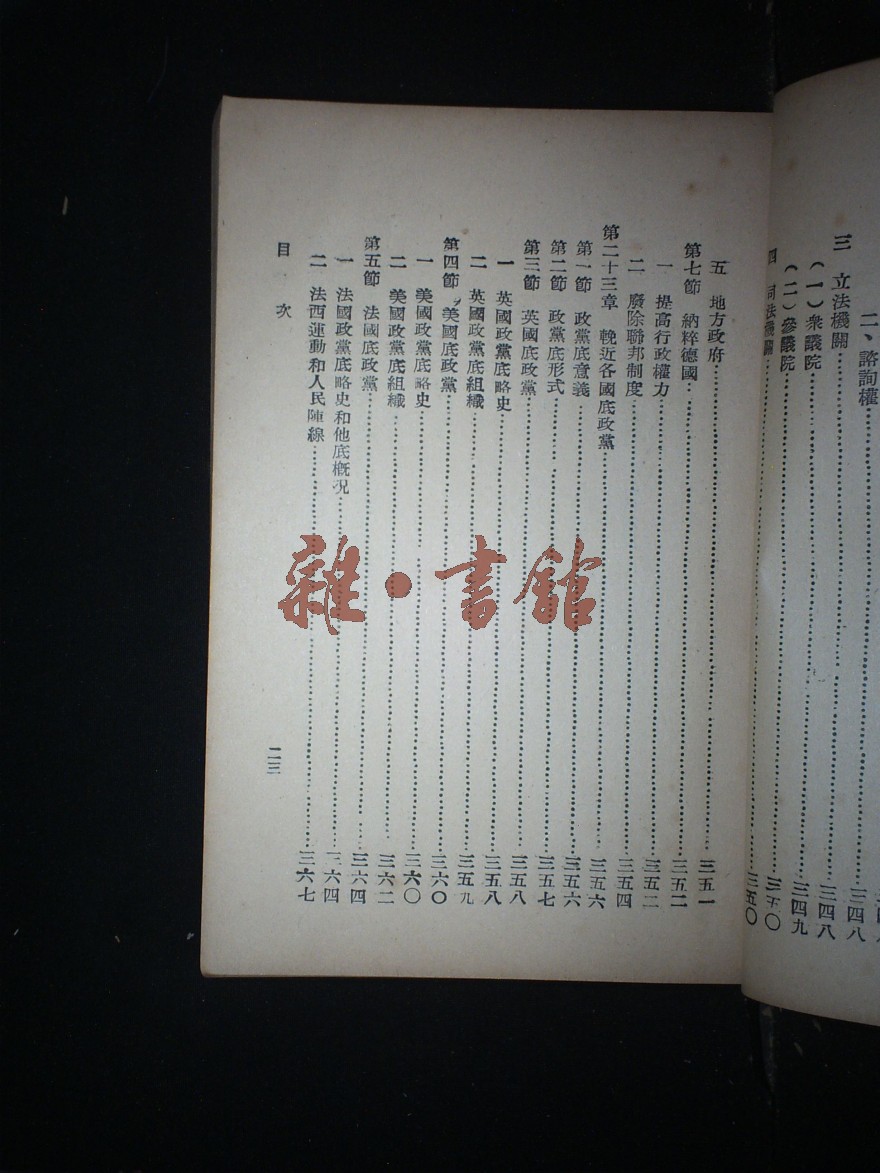 二、諮詢權……三四八
三 立法機關……三四八
(一)衆議院……三四九
(二)參議院……三五〇
四 司法機關……三五〇
五 地方政府……三五一
第七節 納粹德國……三五二
一 提高行政權力……三五二
二 廢除聯邦制度……三五四
第二十三章 輓近各國底政黨……三五六
第一節 政黨底意義……三五六
第二節 政黨底形式……三五七
第三節 英國底政黨……三五八
一 英國政黨底略史……三五八
二 英國政黨底組織……三五九
第四節 美國底政黨……三六〇
一 美國政黨底略史……三六〇
二 美國政黨底組織……三六二
第五節 法國底政黨……三六四
一 法國政黨底略史和他底概況……三六四
二 法西運動和人民陣線……三六七
目次
二三
雜·書館